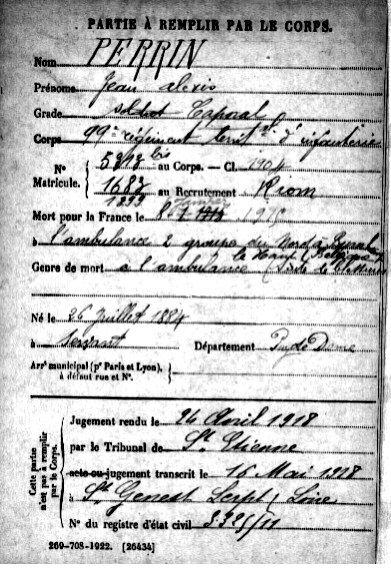 PARTIE À REMPLIR PAR LE CORPS.
Nom PERRIN
Prénoms Jean Alexis
Grade soldat Caporal
Corps 99e régiment territal d'infanterie
N° Matricule. { 5312 bis au Corps. — Cl. 1904
1687 au Recrutement Riom
1293
Mort pour la France le 8 1915
à l'ambulance 2 groupe du Nord à
le Haut (Belgique)
Genre de mort à l'ambulance (suite de blessures
Né le 26 Juillet 1884
à Sermat Département Puy de Dôme
Arrt municipal (pr Paris et Lyon), à défaut rue et N°.
Cette partie n'est pas à remplir par le Corps.
Jugement rendu le 26 Avril 1918
par le Tribunal de St Etienne
acte ou jugement transcrit le 16 Mai 1918
à St Genest Lerpt, Loire
N° du registre d'état civil 3321/11
269-708-1922. [26434]